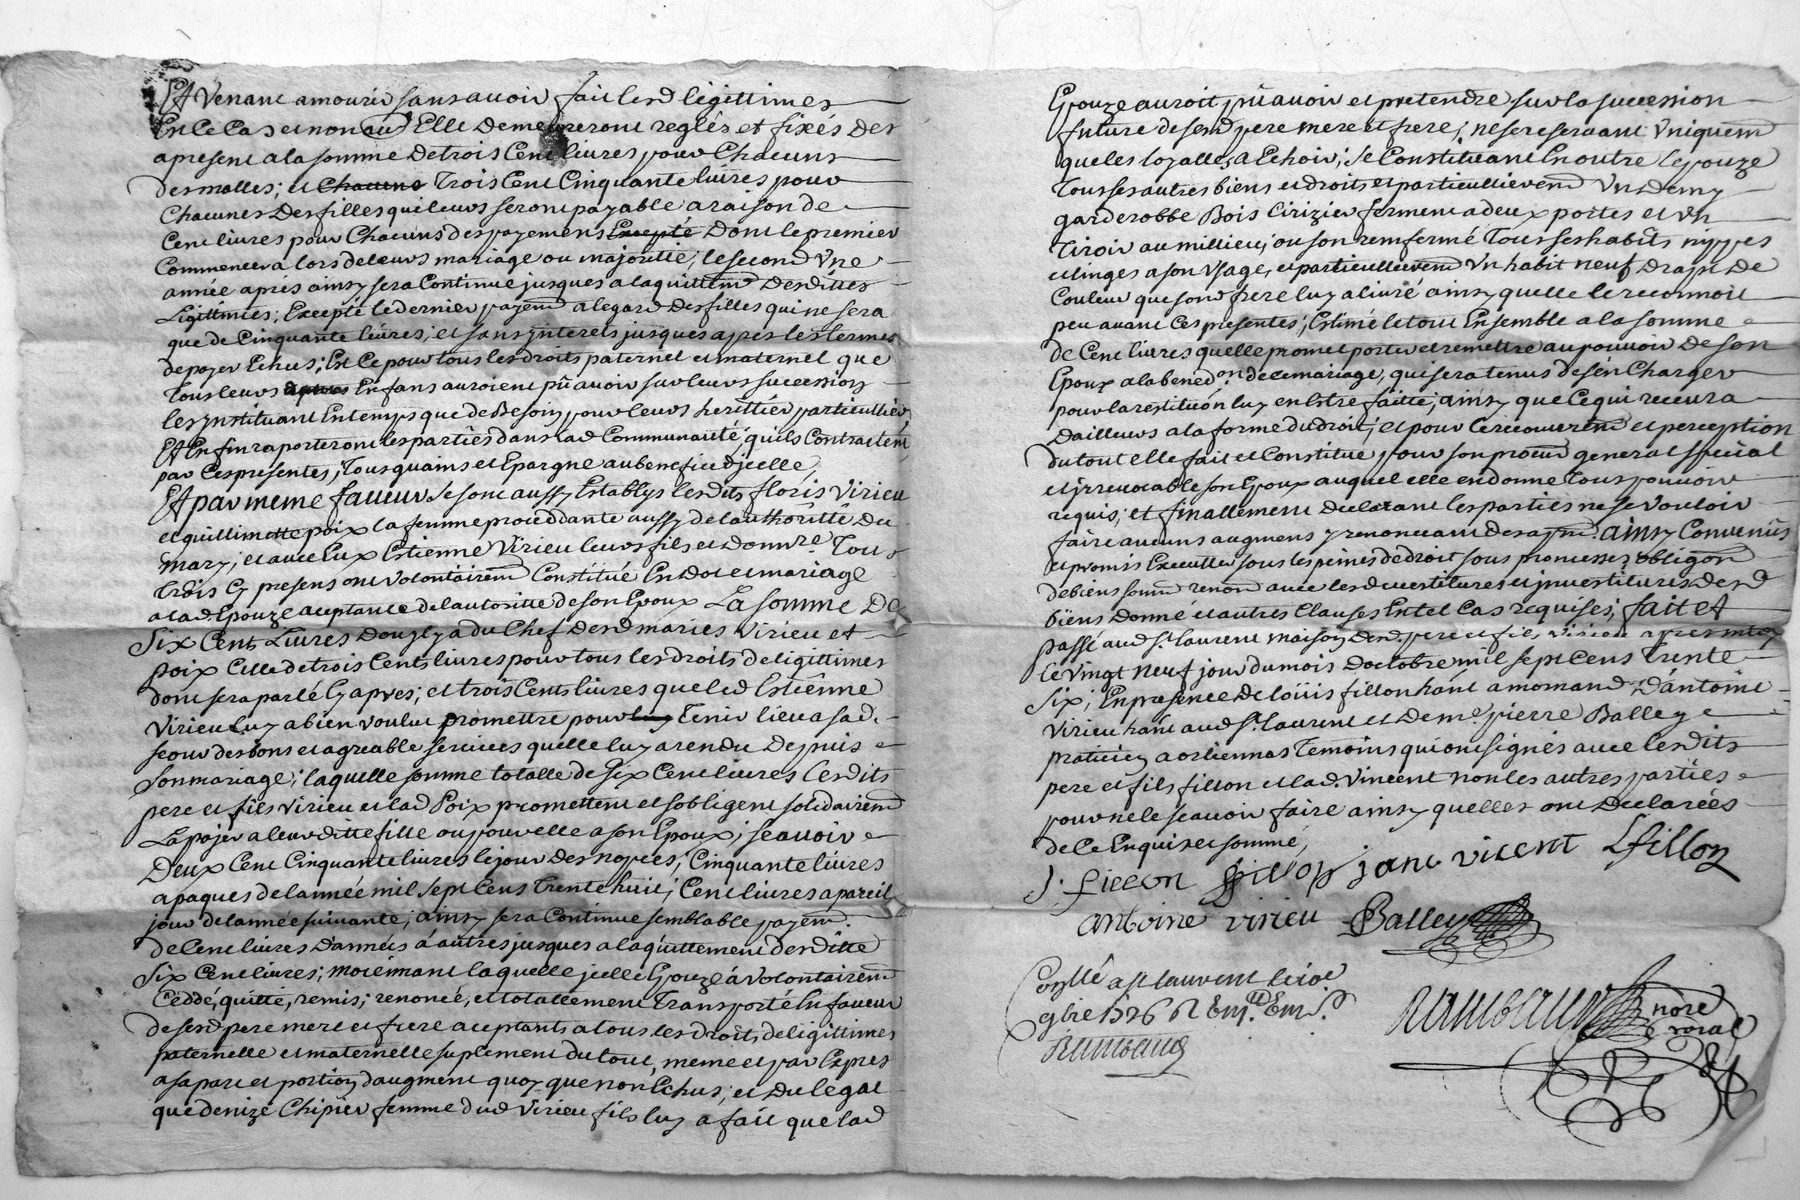 Et venant a mourir sans avoir fait lesd legittimes
En ce cas et non aud Elle demeureront reglés et fixés des
a present a la somme de trois Cent livres pour Chacuns
des malles; et Chacune trois Cent Cinquante livres pour
Chacunes des filles qui leurs seront payable a raison de
Cent livres pour Chacuns des payemens Excepté Dont le premier
Commencera lors de leurs mariage ou majorité, le second une
année aprés ainsy sera Continué jusques a la quittem desdittes
Ligittimes; Excepté le dernier payem a legard des filles qui ne sera
que de Cinquante livres; et sans ynterets jusques apres les termes
de payer Echus; Et ce pour tous les droits paternel et maternel que
tous leurs Enfans auroient pû avoir sur leurs succession
les ynstituant En temps que de Besoin pour leurs herittier particullier
Et Enfin raporteront les parties dans lad Communauté, quils Contractent
par Ces presentes, tous quains et Epargne au benefice djcelle,
Et par meme faveur se sont aussy Establys lesdits floris Virieu
et guillimette poix sa femme proceddante aussy de lauthôritté du
mary, et avec Eux Estienne Virieu leurs fils et donnre. Tous
trois Cy presens ont volontairem Constitué En Dot et mariage
a lad Epouze aceptante de lautoritte de son Epoux La somme De
Six Cent Livres Dont y a du Chef desd mariés Virieu et
poix Celle de trois Cents livres pour tous les droits de ligittimes
dont sera parlé Cy apres; et trois Cents livres que led Estienne
Virieu luy a bien voulu promettre pour luy tenir lieu a sad.
seour des bons et agreable services quelle luy a rendu Depuis
son mariage; laquelle somme totalle de six Cent livres lesdits
pere et fils Virieu et lad Poix promettent et sobligent solidairem
La payer a leurditte fille ou pour elle a son Epoux; scavoir
Deux Cent Cinquante livres le jour des nopces; Cinquante livres
a paques de lannée mil sept Cens trente huit; Cent livres a pareil
jour de lannée suivante; ainsy sera Continué semblable payem.
de Cent livres Dannées á autres jusques a la quittement desditte
Six Cent livres; moiennant laquelle jcelle Epouze á volontairem
Ceddé, quitté, remis; renoncé, et totallement Transporté En faveur
de sesd pere mere et frere aceptants a tous les droits de ligittimes
paternelle et maternelle suplement du tout, meme et par Expres
a sa part et portion daugment quoy que non Echus; et du legat
que denize Chipier femme dud Virieu fils luy a fait que lad
Epouze auroit pû avoir et pretendre sur la succession
future de sesd pere mere et frere; ne se reservant uniquem
que les loyalles a Echoir; se Constituant En outre lepouze
tous ses autres biens et droits et particullierem un Demy
garderobbe Bois Cirizier fermant a deux portes et un
tiroir au millieu; ou son remfermé tous ses habits nippes
et linges a son usage, et particullierem un habit neuf drapt De
Couleur que sond frere luy a livré ainsy quelle le reconnoit
peu avant Ces presentes; Estimé le tout Ensemble a la somme
de Cent livres quelle promet porter et remettre au pouvoir De son
Epoux a la bened.on de ce mariage, qui sera tenus de sen Charger
pour la restitu.on luy en Estre faitte; ainsy que Ce qui recevra
Dailleurs a la forme du droit; et pour le recouvrem et perception
du tout elle fait et Constitue pour son procur general special
et jrrevocable son Epoux auquel elle en donne tous pouvoir
requis; et finallement declarant les parties ne se vouloir
faire aucuns augmens y renonceant des a pnt. ainsy Convenûs
et promis Executter sous les peines de droit sous promesses obligon
de biens soum renon avec lesd vestitures et jnvestitures desd
biens donné et autres Clauses En tel Cas requises; fait Et
passé aud St. laurent maison desd pere et fils Virieu apres midy
le vingt neuf jour du mois doctobre mil sept Cens trente
Six; En presence de loüis fillon hant a mornand; Dántoine
Virieu hant aud St. laurent et de me. pierre Balley
praticien a orliennas temoins qui ont signés avec lesdits
pere et fils fillon et lad. Vincent non les autres parties
pour ne le scavoir faire ainsy quelles ont declarées
de Ce Enquis et sommé,
J: fillon fillon jane vicent Lfillon
antoine virieu Balley
Conllé a St laurent le
1736
Rambaud
Rambaud nore
roial